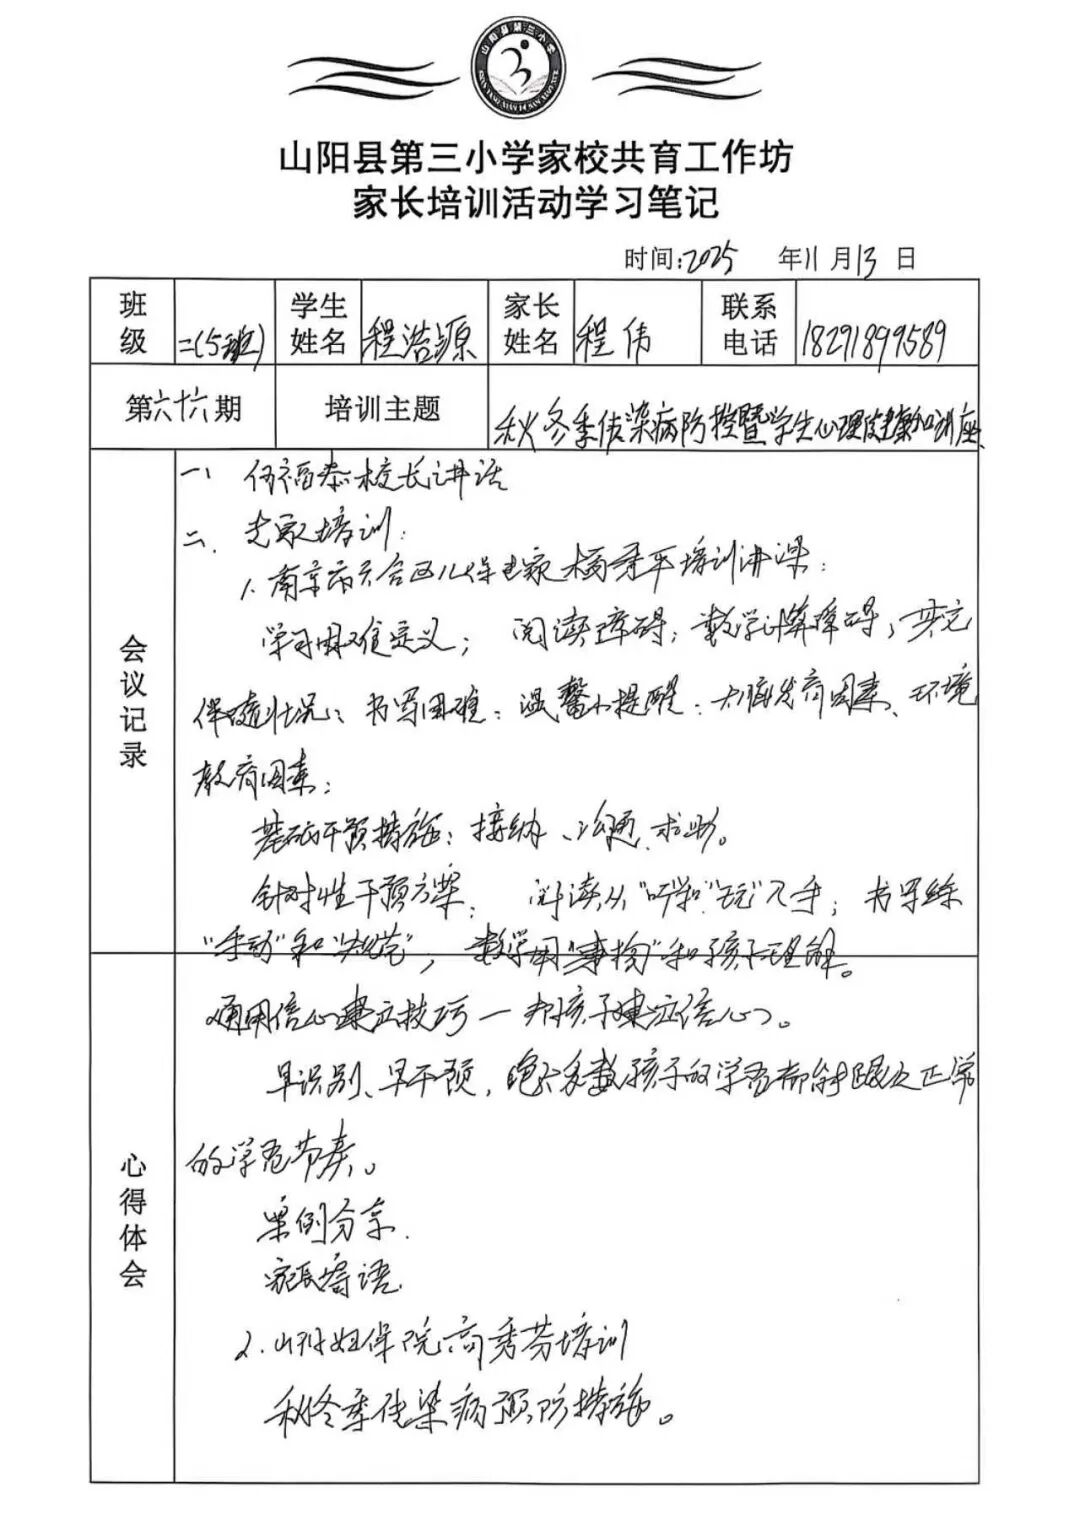 山阳县第三小学
山阳县第三小学家校共育工作坊
家长培训活动学习笔记
时间:2025 年11月13日
班级 二(5班) 学生姓名 程浩源 家长姓名 程伟 联系电话 18291899589
第六十六期 培训主题 秋冬季传染病防控暨学生心理健康知识讲座
会议记录
一、 校长讲话
二、专家培训:
1.南京市六合区儿保专家杨 平培训讲课:
学习困难定义; 阅读障碍;数学计算障碍;共充
伴随状况;书写困难;温馨小提醒:大脑发育因素、环境
教育因素;
基础干预措施:接纳、沟通、求助。
针对性干预方案: 阅读从“听”和“玩”入手;书写练
“手动”和“规范”, 数学用“事物”和孩子理解。
心得体会
通用信心建立技巧—帮孩子建立信心。
早识别、早干预,绝大多数孩子的学习都能跟上正常
的学习节奏。
案例分享.
家长寄语
2.山阳妇保院高秀芬培训
秋冬季传染病预防措施。